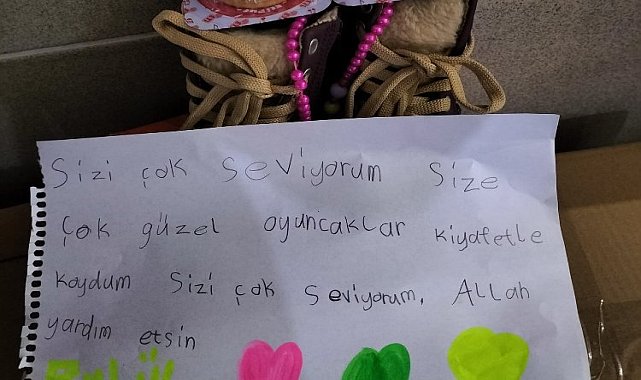 Sizi çok seviyorum Size
çok güzel oyuncaklar kiyafetle
koydum Sizi çok seviyorum, Allah
yardım etsin